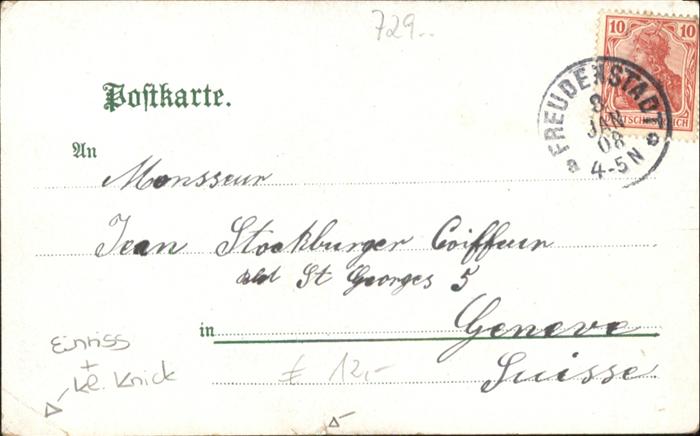 729..
10 10
DEUTSCHES REICH
FREUDENSTADT
8
JAN
08
4-5 N
Postkarte.
An
Monsseur
Jean Stockburger Coiffeur
Bld St Georges 5
in Geneve
Suisse
Einriss
+
kl. Knick
€ 12,-